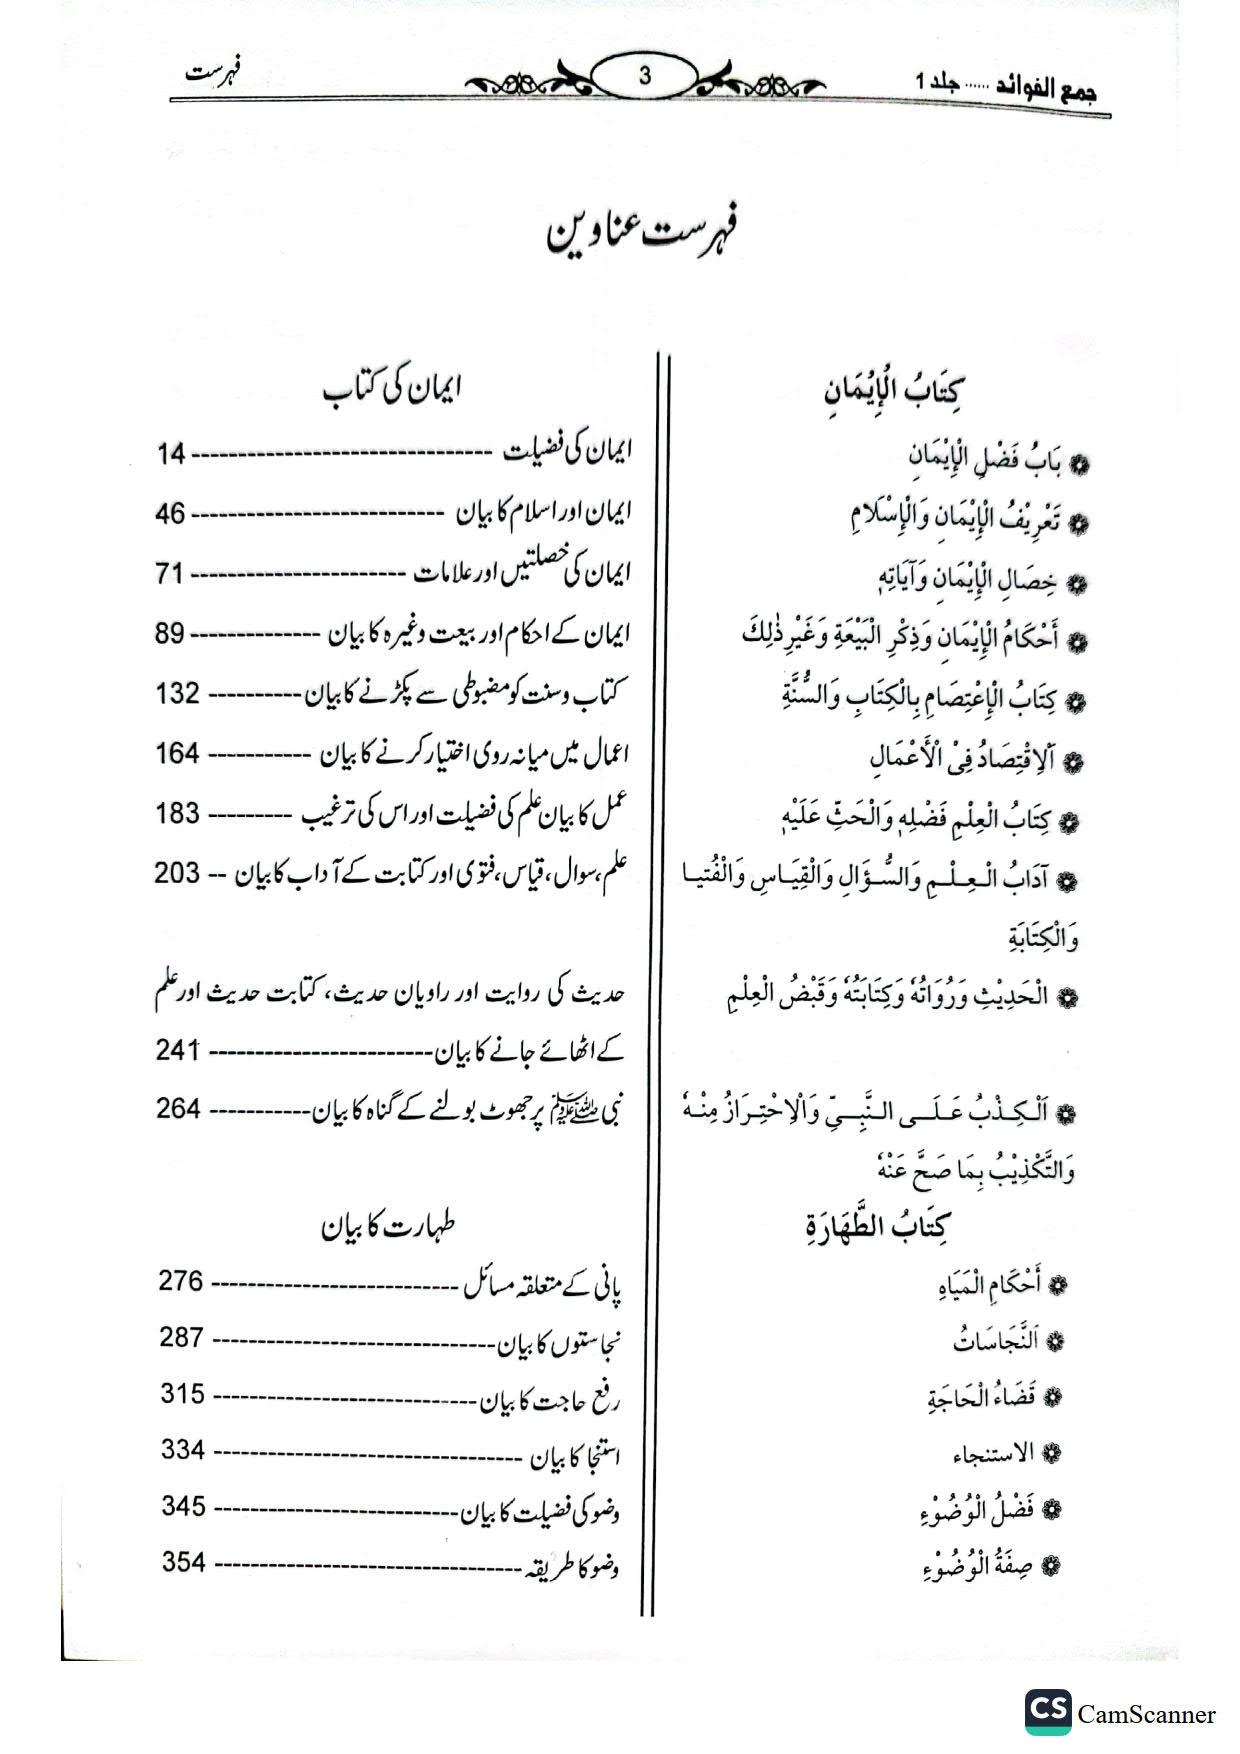 جمع الفوائد ..... جلد 1
3
فہرست
فہرست عناوین
كِتَابُ الْإِيْمَانِ
ایمان کی کتاب
❁ بَابُ فَضْلِ الْإِيْمَانِ
ایمان کی فضیلت -------------------------------- 14
❁ تَعْرِيْفُ الْإِيْمَانِ وَالْإِسْلَامِ
ایمان اور اسلام کا بیان --------------------------- 46
❁ خِصَالِ الْإِيْمَانِ وَآيَاتِهٖ
ایمان کی خصلتیں اور علامات ----------------------- 71
❁ أَحْكَامُ الْإِيْمَانِ وَذِكْرِ الْبَيْعَةِ وَغَيْرِ ذٰلِكَ
ایمان کے احکام اور بیعت وغیرہ کا بیان -------------- 89
❁ كِتَابُ الْإِعْتِصَامِ بِالْكِتَابِ وَالسُّنَّةِ
کتاب وسنت کو مضبوطی سے پکڑنے کا بیان ---------- 132
❁ اَلْاِقْتِصَادُ فِيْ الْأَعْمَالِ
اعمال میں میانہ روی اختیار کرنے کا بیان ----------- 164
❁ كِتَابُ الْعِلْمِ فَضْلِهٖ وَالْحَثِّ عَلَيْهِ
عمل کا بیان علم کی فضیلت اور اس کی ترغیب --------- 183
❁ آدَابُ الْعِلْمِ وَالسُّؤَالِ وَالْقِيَاسِ وَالْفُتيا
وَالْكِتَابَةِ
علم، سوال، قیاس، فتوی اور کتابت کے آداب کا بیان -- 203
❁ الْحَدِيْثِ وَرُوَاتُهٗ وَكِتَابَتُهٗ وَقَبْضُ الْعِلْمِ
حدیث کی روایت اور راویان حدیث، کتابت حدیث اور علم
کے اٹھائے جانے کا بیان ------------------------ 241
❁ اَلْكِذْبُ عَلَى النَّبِيِّ وَالْاِحْتِرَازُ مِنْهُ
وَالتَّكْذِيْبُ بِمَا صَحَّ عَنْهُ
نبی ﷺ پر جھوٹ بولنے کے گناہ کا بیان ----------- 264
كِتَابُ الطَّهَارَةِ
طہارت کا بیان
❁ أَحْكَامِ الْمَيَاهِ
پانی کے متعلقہ مسائل --------------------------- 276
❁ اَلنَّجَاسَاتُ
نجاستوں کا بیان ------------------------------- 287
❁ قَضَاءُ الْحَاجَةِ
رفع حاجت کا بیان ----------------------------- 315
❁ الاستنجاء
استنجا کا بیان ---------------------------------- 334
❁ فَضْلُ الْوُضُوْءِ
وضو کی فضیلت کا بیان --------------------------- 345
❁ صِفَةُ الْوُضُوْءِ
وضو کا طریقہ ---------------------------------- 354
CS CamScanner